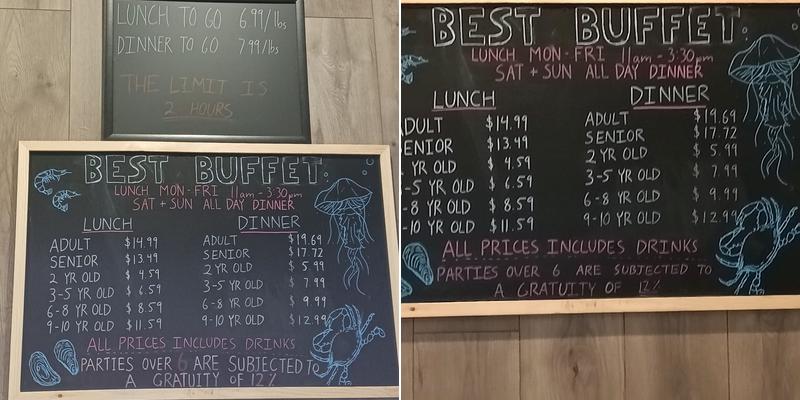 LUNCH TO GO 6.99/lbs
DINNER TO GO 7.99/lbs
THE LIMIT IS
2 HOURS
BEST BUFFET
LUNCH MON-FRI 11am-3:30pm
SAT + SUN ALL DAY DINNER
LUNCH DINNER
ADULT $14.99 ADULT $19.69
SENIOR $13.49 SENIOR $17.72
2 YR OLD $4.59 2 YR OLD $5.99
3-5 YR OLD $6.59 3-5 YR OLD $7.99
6-8 YR OLD $8.59 6-8 YR OLD $9.99
9-10 YR OLD $11.59 9-10 YR OLD $12.99
ALL PRICES INCLUDES DRINKS
PARTIES OVER 6 ARE SUBJECTED TO
A GRATUITY OF 12%
BEST BUFFET
LUNCH MON-FRI 11am-3:30pm
SAT + SUN ALL DAY DINNER
LUNCH DINNER
ADULT $14.99 ADULT $19.69
ENIOR $13.49 SENIOR $17.72
YR OLD $4.59 2 YR OLD $5.99
-5 YR OLD $6.59 3-5 YR OLD $7.99
-8 YR OLD $8.59 6-8 YR OLD $9.99
-10 YR OLD $11.59 9-10 YR OLD $12.99
ALL PRICES INCLUDES DRINKS
PARTIES OVER 6 ARE SUBJECTED TO
A GRATUITY OF 12%